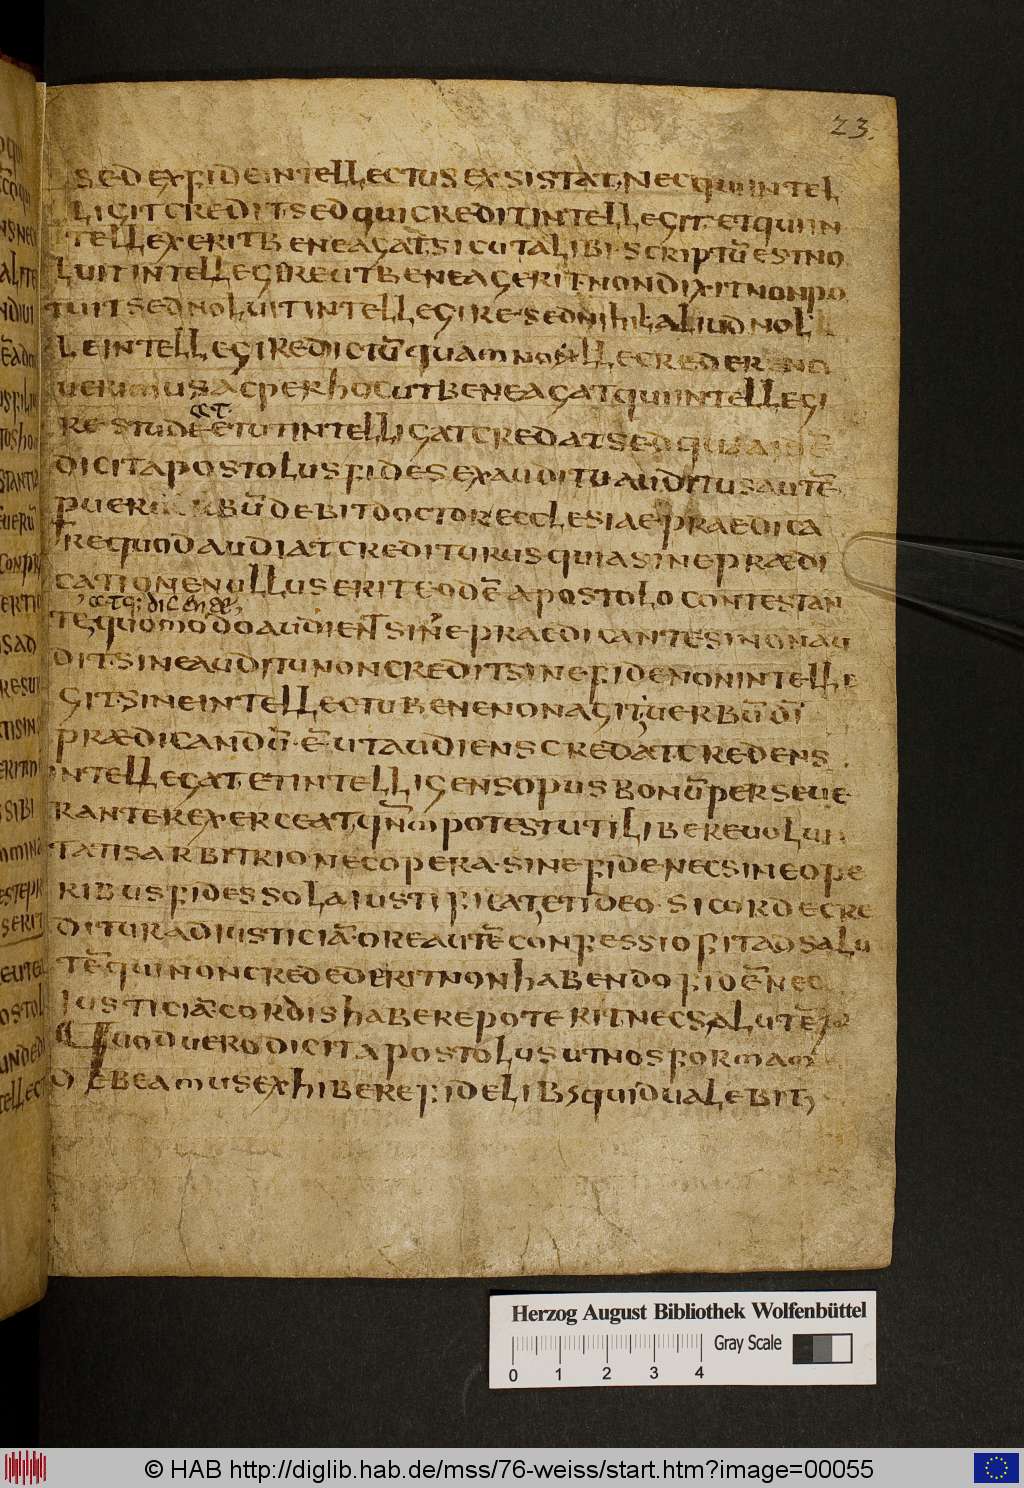 23.
SED EX FIDE INTELLECTUS EXSISTAT, NEC QUI INTEL
LIGIT CREDIT. SED QUI CREDIT INTELLEGIT. ET QUI IN
TELLEXERIT BENE AGAT. SICUT ALIBI SCRIPTŪ EST NO
LUIT INTELLEGIRE UT BENE AGERIT. NON DIXIT NON PO
TUIT SED NOLUIT INTELLEGIRE. SED NIHIL ALIUD NOL
LE INTELLEGIRE DICTŪ QUAM NOLLE CREDERE NO
VERIMUS AC PER HOC UT BENE AGAT QUI INTELLEGI
RE STUDE ET UT INTELLIGAT CREDAT SED
DICIT APOSTOLUS FIDES EX AUDITU AUDITUS AUTĒ
PVER BŪ DEBIT DOCTOR ECCLESIAE PRAEDICA
RE QUOD AUDIAT CREDITURUS QUIA SINE PRÆDI
CATIONE NULLUS ERIT EODĒ APOSTOLO CONTESTAN
TE, QUOMODO AUDIENT SINE PRAEDICANTE SI NON AU
DIT. SINE AUDITU NON CREDIT SINE FIDE NON INTELLE
GIT. SINE INTELLECTU BENE NON AGIT, VERBŪ DĪ
PRÆDICANDŪ Ē UT AUDIENS CREDAT. CREDENS
INTELLEGAT. ET INTELLIGENS OPUS BONŪ PERSEVE
RANTER EXERCEAT, QNM POTEST UTI LIBERE VOLUN
TATIS ARBITRIO NEC OPERA SINE FIDE NEC SINE OPE
RIBUS FIDES SOLA IUSTIFICAT, ET IDEO SI CORDE CRE
DITUR AD IUSTICIĀ. ORE AUTĒ CONFESSIO FIT AD SALU
TĒ QUI NON CREDEDERIT NON HABENDO FIDĒ NEC
IUSTICIĀ CORDIS HABERE POTERIT. NEC SALUTĒ
QUOD VERO DICIT APOSTOLUS UT NOS FORMAM
DEBEAMUS EXHIBERE FIDELIB; QUID VALEBIT,
Herzog August Bibliothek Wolfenbüttel
0 1 2 3 4 Gray Scale
© HAB http://diglib.hab.de/mss/76-weiss/start.htm?image=00055